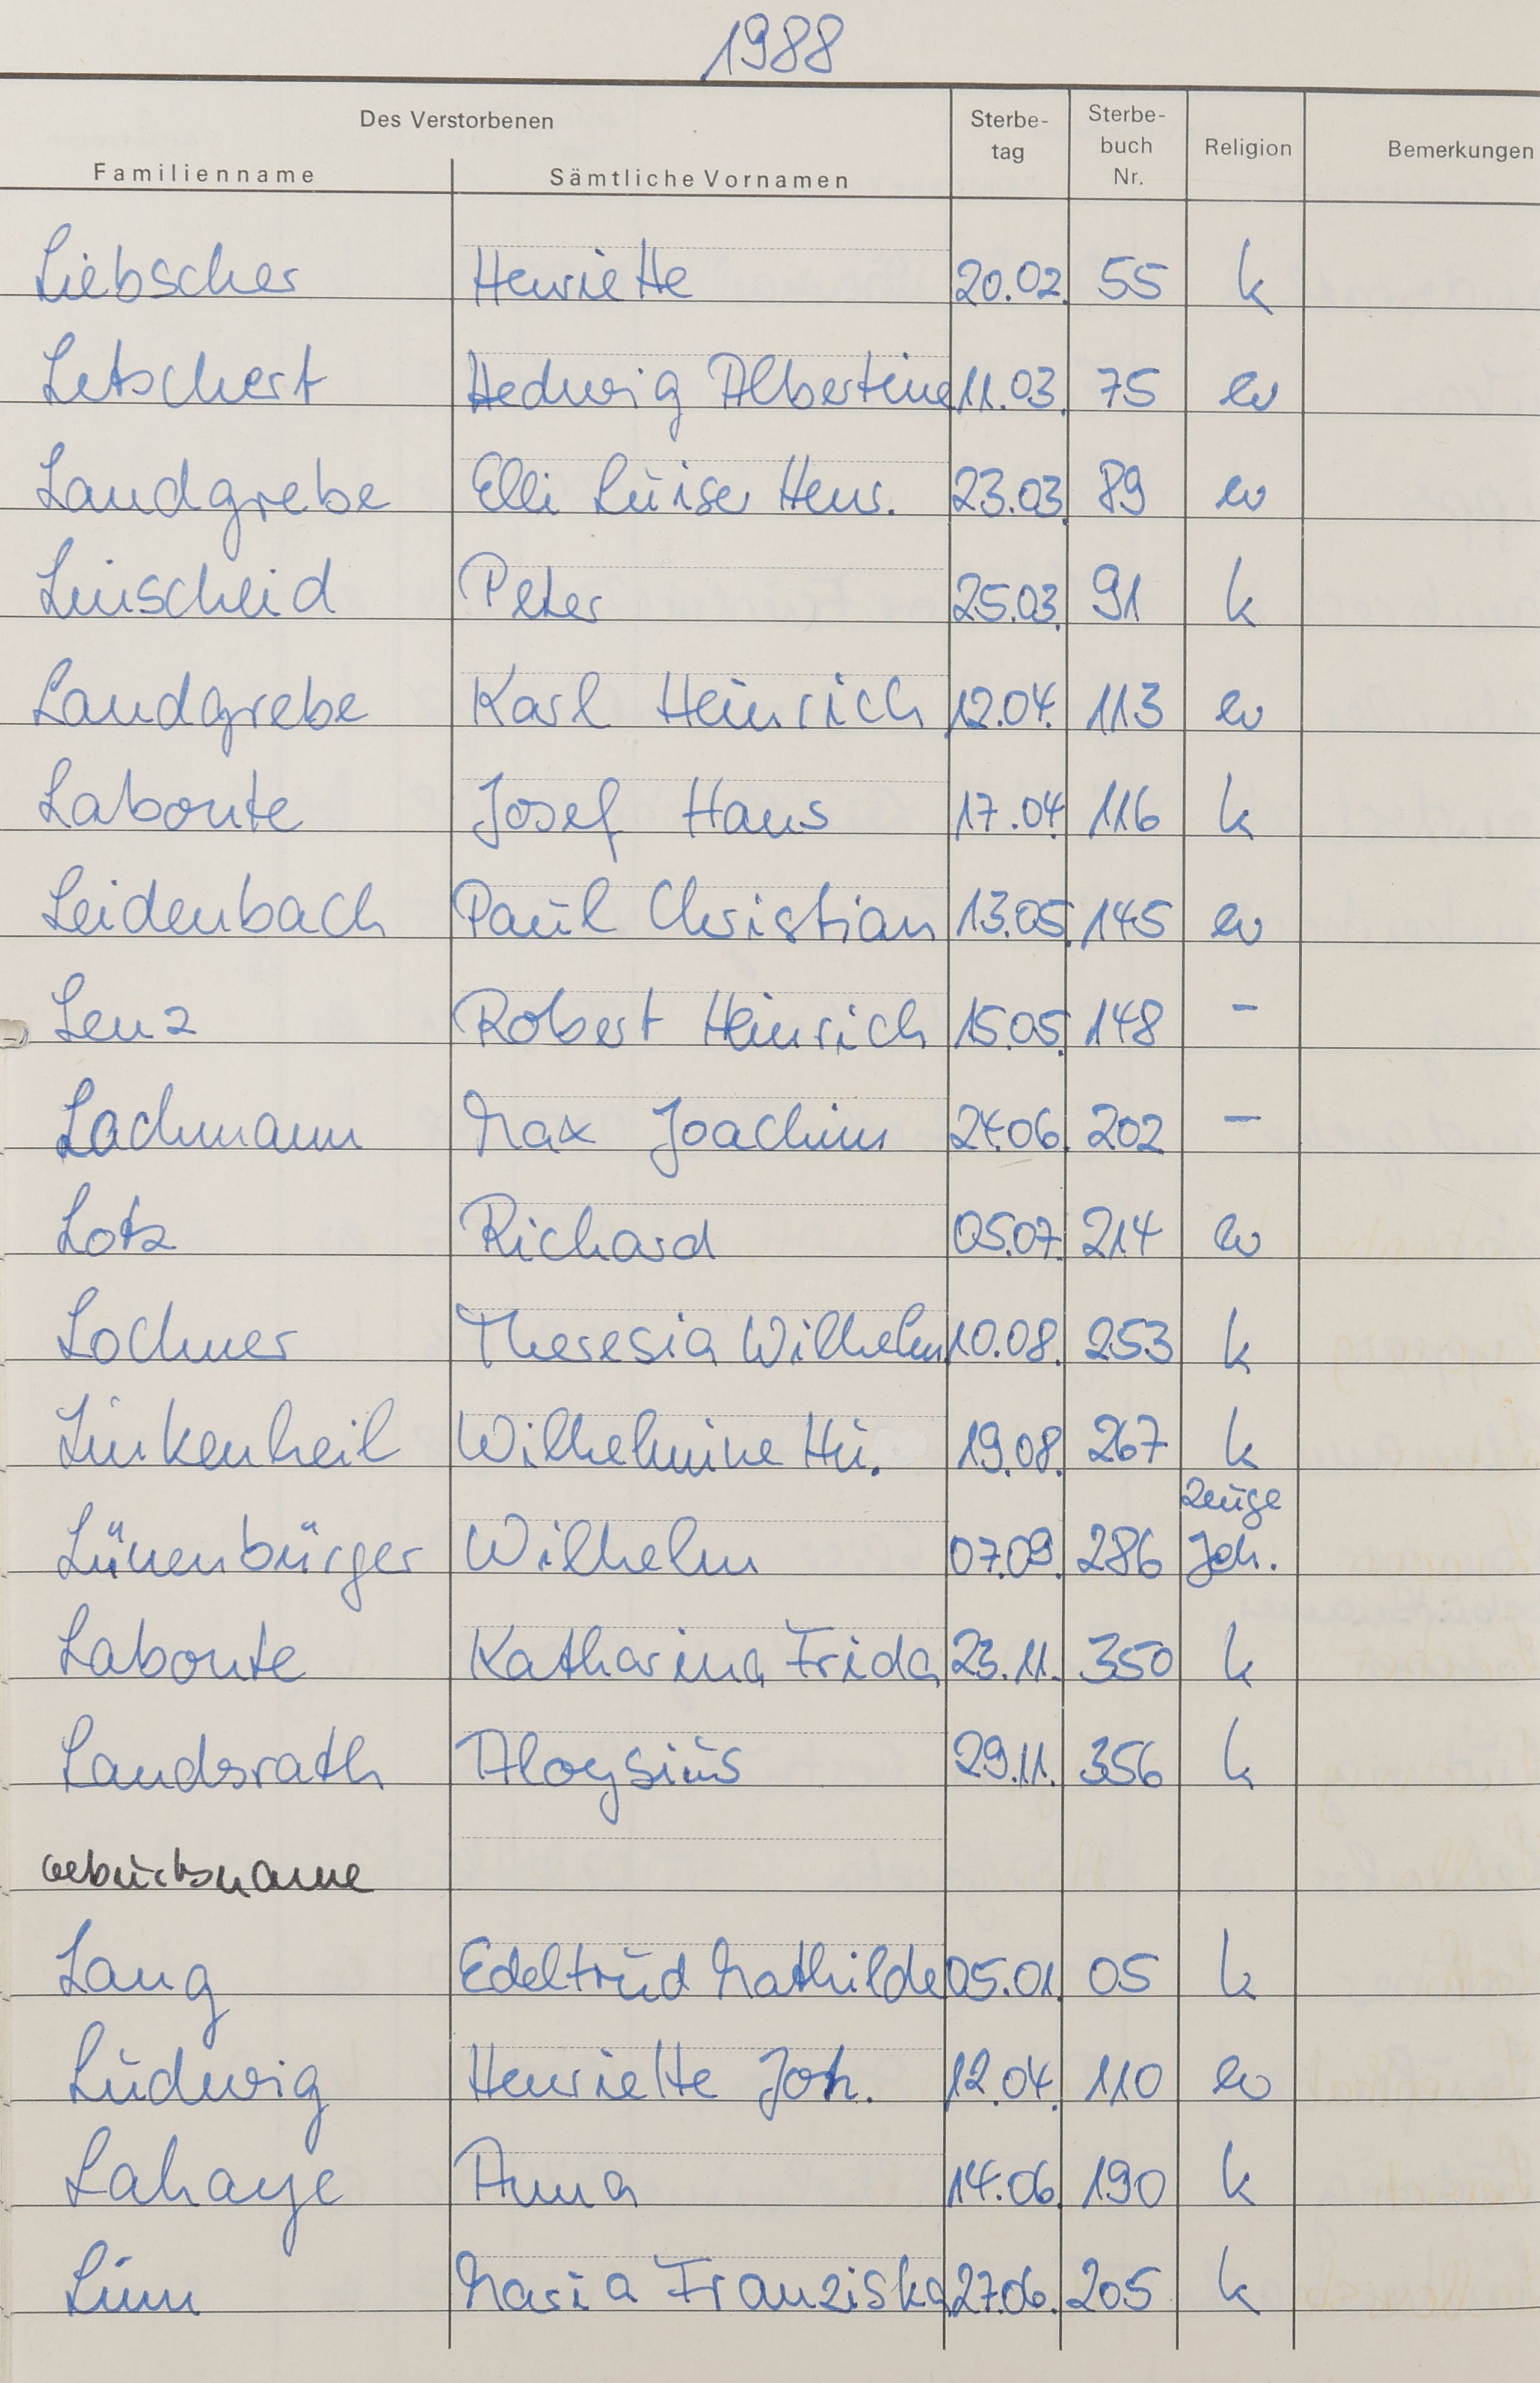 1988
Des Verstorbenen
Familienname Sämtliche Vornamen Sterbe-tag Sterbe-buch Nr. Religion Bemerkungen
Liebscher Henriette 20.02. 55 k
Letschert Hedwig Albertine 11.03. 75 ev
Landgrebe Elli Luise Henr. 23.03. 89 ev
Linscheid Peter 25.03. 91 k
Landgrebe Karl Heinrich 12.04. 113 ev
Labonte Josef Hans 17.04. 116 k
Leidenbach Paul Christian 13.05. 145 ev
Lenz Robert Heinrich 15.05. 148 -
Lachmann Max Joachim 24.06. 202 -
Lotz Richard 05.07. 214 ev
Lochner Theresia Wilhelm 10.08. 253 k
Linkenheil Wilhelmine Hu. 19.08. 267 k
Lünenbürger Wilhelm 07.09. 286 Zeuge Jeh.
Labonte Katharina Frida 23.11. 350 k
Landsrath Aloysius 29.11. 356 k
Geburtsname
Lang Edeltrud Mathilde 05.01. 05 k
Ludwig Henriette Joh. 12.04. 110 ev
Lahaye Anna 14.06. 190 k
Linn Maria Franziska 27.06. 205 k